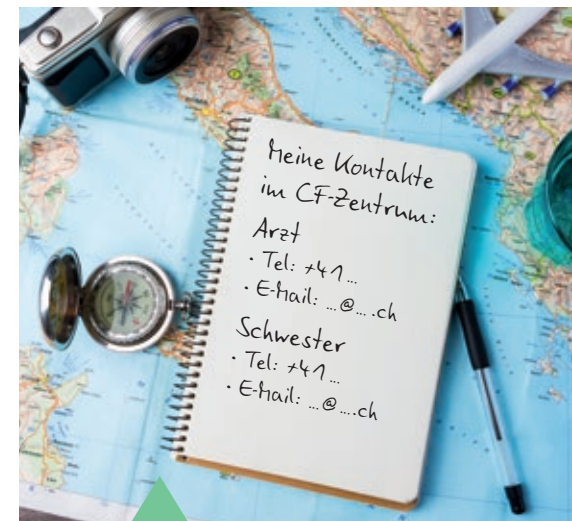 Meine Kontakte
im CF-Zentrum:
Arzt
· Tel: +41...
· E-Mail: ...@....ch
Schwester
· Tel: +41...
· E-Mail: ...@....ch